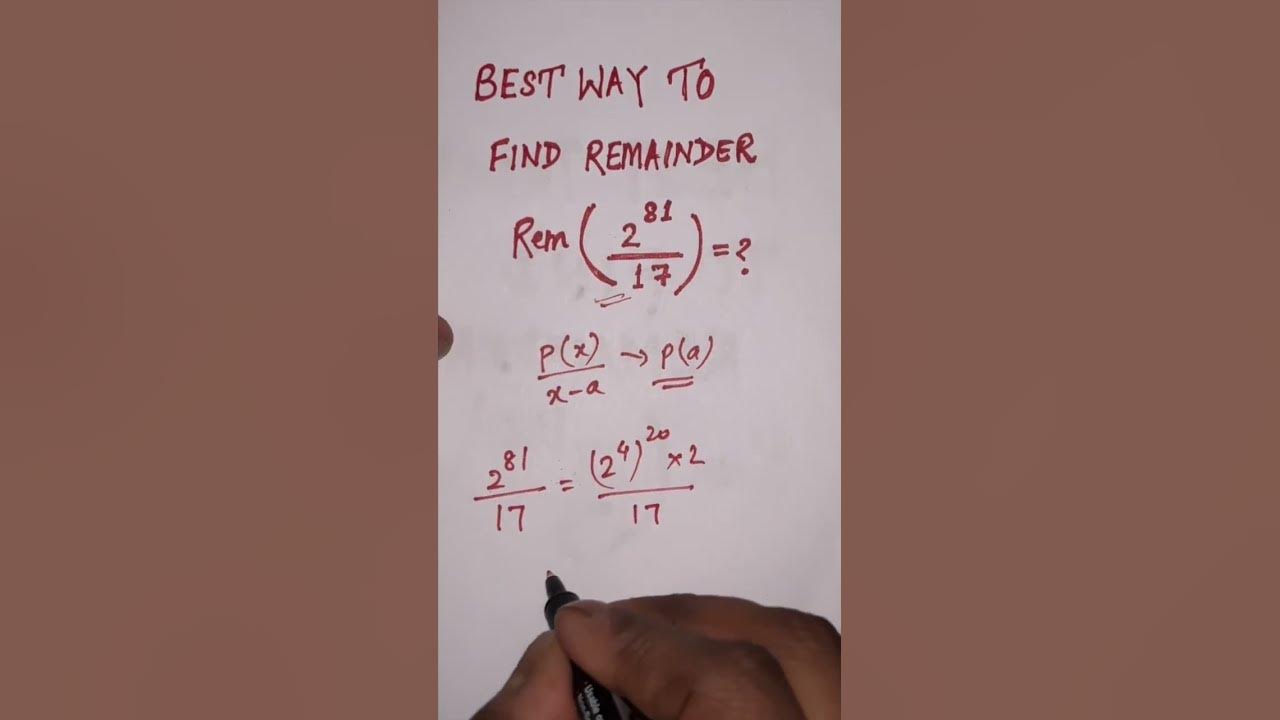 BEST WAY TO
FIND REMAINDER
Rem(2^81/17) = ?
P(x)/x-a → P(a)
2^81/17 = (2^4)^20 × 2/17